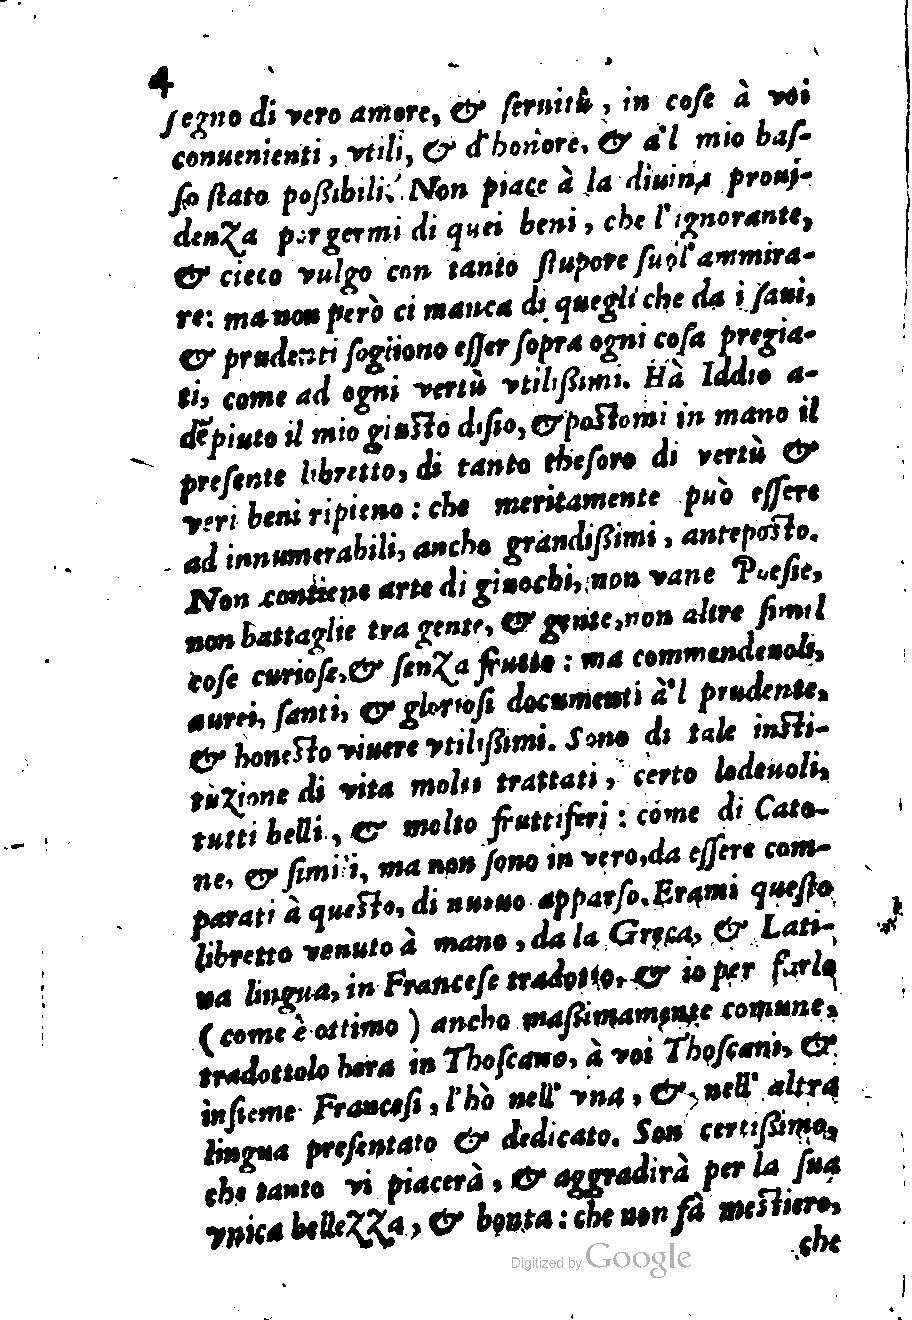 4
segno di vero amore, & seruitù, in cose à voi
conuenienti, vtili, & d'honore, & a'l mio bas-
so stato possibili. Non piace à la diuina proui-
denza porgermi di quei beni, che l'ignorante,
& cieco vulgo con tanto stupore suol'ammira-
re: ma non però ci manca di quegli che da i saui,
& prudenti sogliono esser sopra ogni cosa pregia-
ti, come ad ogni vertù vtilissimi. Hà Iddio a-
dẽpiuto il mio giusto disio, & postomi in mano il
presente libretto, di tanto thesoro di vertù &
veri beni ripieno: che meritamente può essere
ad innumerabili, ancho grandissimi, anteposto.
Non contiene arte di giuochi, non vane Poesie,
non battaglie tra gente, & gente, non altre simil
cose curiose, & senza frutto: ma commendeuoli,
aurei, santi, & gloriosi documenti à'l prudente,
& honesto viuere vtilissimi. Sono di tale insti-
tuzione di vita molti trattati, certo lodeuoli,
tutti belli, & molto fruttiferi: come di Cato-
ne, & simili, ma non sono in vero, da essere com-
parati à questo, di nuouo apparso. Erami questo
libretto venuto à mano, da la Greca, & Lati-
na lingua, in Francese tradotto, & io per farlo
(come è ottimo) ancho massimamente comune,
tradottolo hora in Thoscano, à voi Thoscani, &
insieme Francesi, l'hò nell' vna, & nell' altra
lingua presentato & dedicato. Son certissimo,
che tanto vi piacerà, & aggradirà per la sua
vnica bellezza, & bonta: che non fà mestiero,
che
Digitized by Google